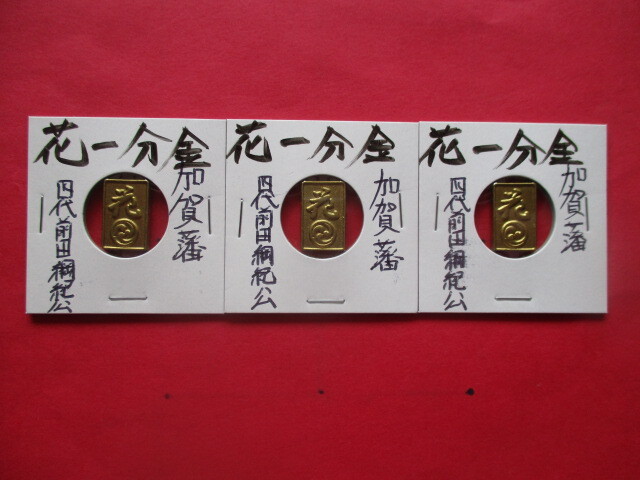 花一分金
加賀藩
四代前田綱紀公
花
花一分金
加賀藩
四代前田綱紀公
花
花一分金
加賀藩
四代前田綱紀公
花